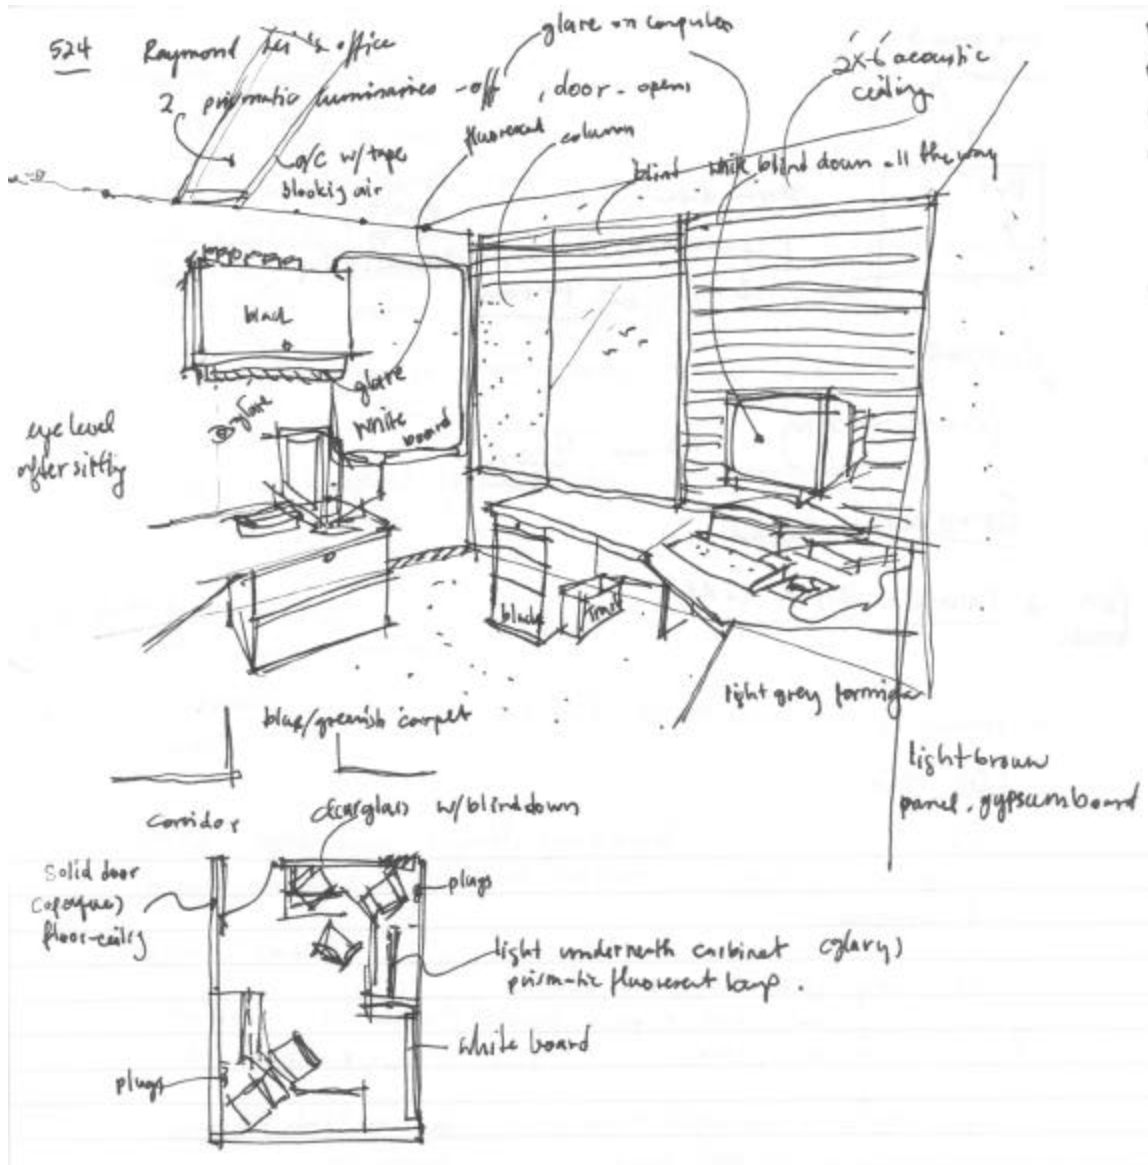 524 Raymond office
glare on computer
2 prismatic luminaries - off
door - opens
2'x6' acoustic
ceiling
fluorescent
column
A/C w/ tape
blockig air
blind
white blind down all the way
black
glare
white
board
glare
eye level
after sittig
black
trash
light grey formica
blue/greenish carpet
light brown
panel, gypsum board
corridor
clearglass w/ blind down
Solid door
(opaque)
floor-ceilig
plugs
light underneath carbinet (glary)
prismatic fluorescent lamp.
white board
plugs